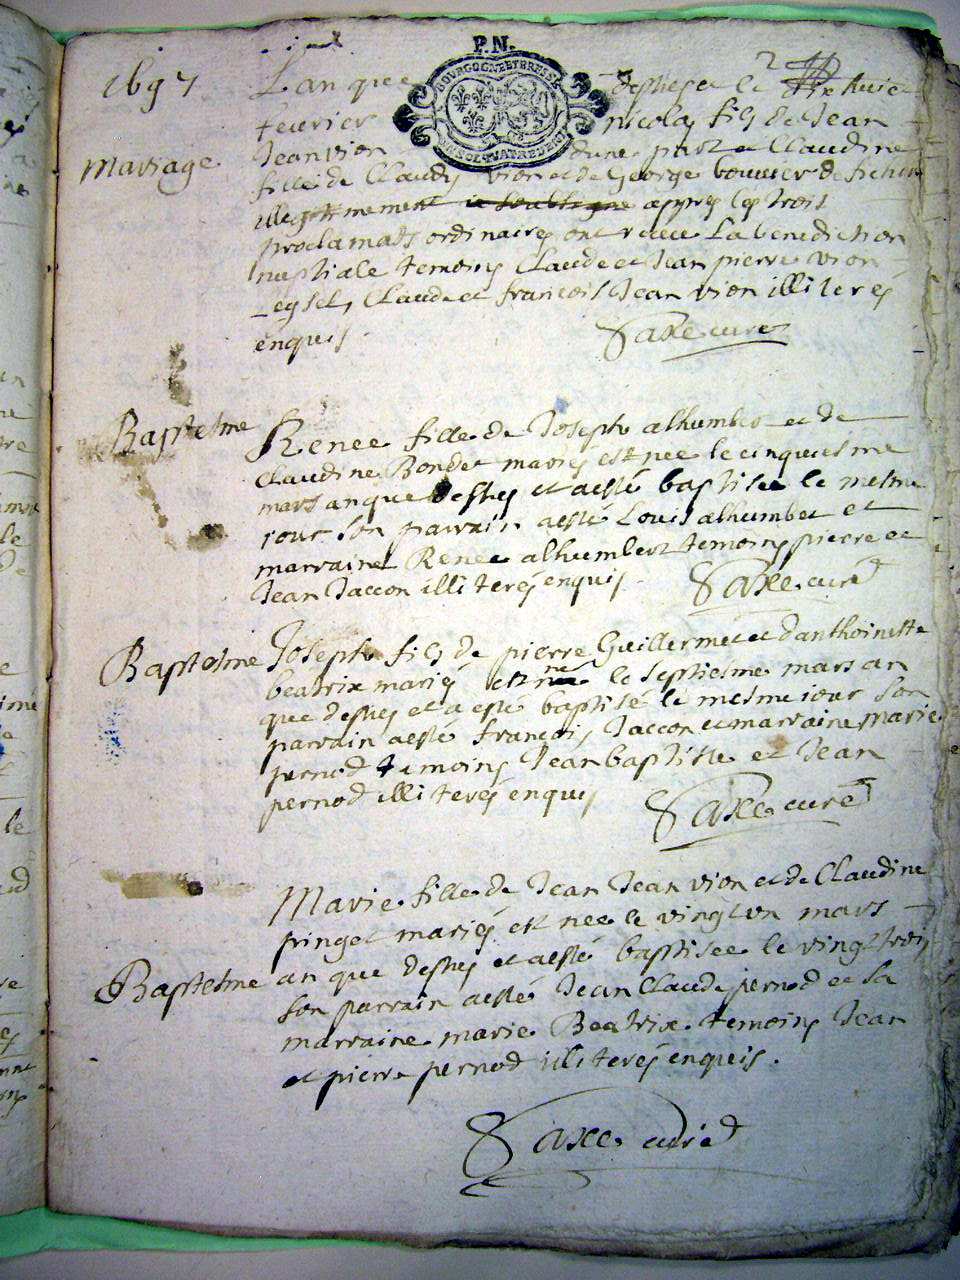 P.N.
BOURGOGNE ET BRESSE
1697 L'an que dessus et le dix huict
feuvrier nicolas fils de Jean
Mariage Jeanvion d'une part et Claudine
fille de Claudy vion et de George bouvier de
illegitimement appres les trois
proclamats ordinaires ont receu La benediction
nuptiale temoins Claude et Jean pierre vion
Claude et françois Jean vion illiteres
enquis Saxe curé
Baptesme Renee fille de Joseph alhumbert et de
Claudine Bondet mariés est nee le cinquiesme
mars an que dessus et a esté baptisee le mesme
jour son parrain a esté Louis alhumbert et
marraine Renee alhumbert temoins pierre et
Jean Jaccon illiterés enquis. Saxe curé
Baptesme Joseph fils de pierre Guillermet et d'anthoinette
beatrix mariés est né le septiesme mars an
que dessus et a esté baptisé le mesme iour son
parrain a esté françois Jaccon et marraine marie
pernod temoins Jean baptiste et Jean
pernod illiterés enquis Saxe curé
Marie fille de Jean Jean vion et de Claudine
pinget mariés est nee le vingt un mars
Baptesme an que dessus et a esté baptisee le vingt trois
son parrain a esté Jean Claude pernod et sa
marraine marie Beatrix temoins Jean
et pierre pernod illiterés enquis.
Saxe curé